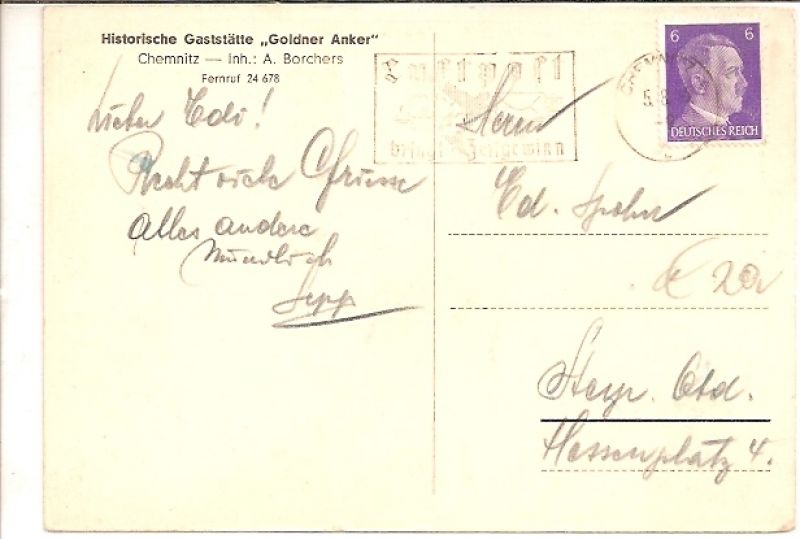 Historische Gaststätte „Goldner Anker"
Chemnitz — Inh.: A. Borchers
Fernruf 24 678
Lieber Edi!
Recht viele Grüsse
alles andere
mündlich
Sepp
Luftpost
bringt Zeitgewinn
CHEMNITZ
5.8
6 6
DEUTSCHES REICH
Herrn
Ed. Spohn
20
Steyr. Otd.
Hessenplatz 4.